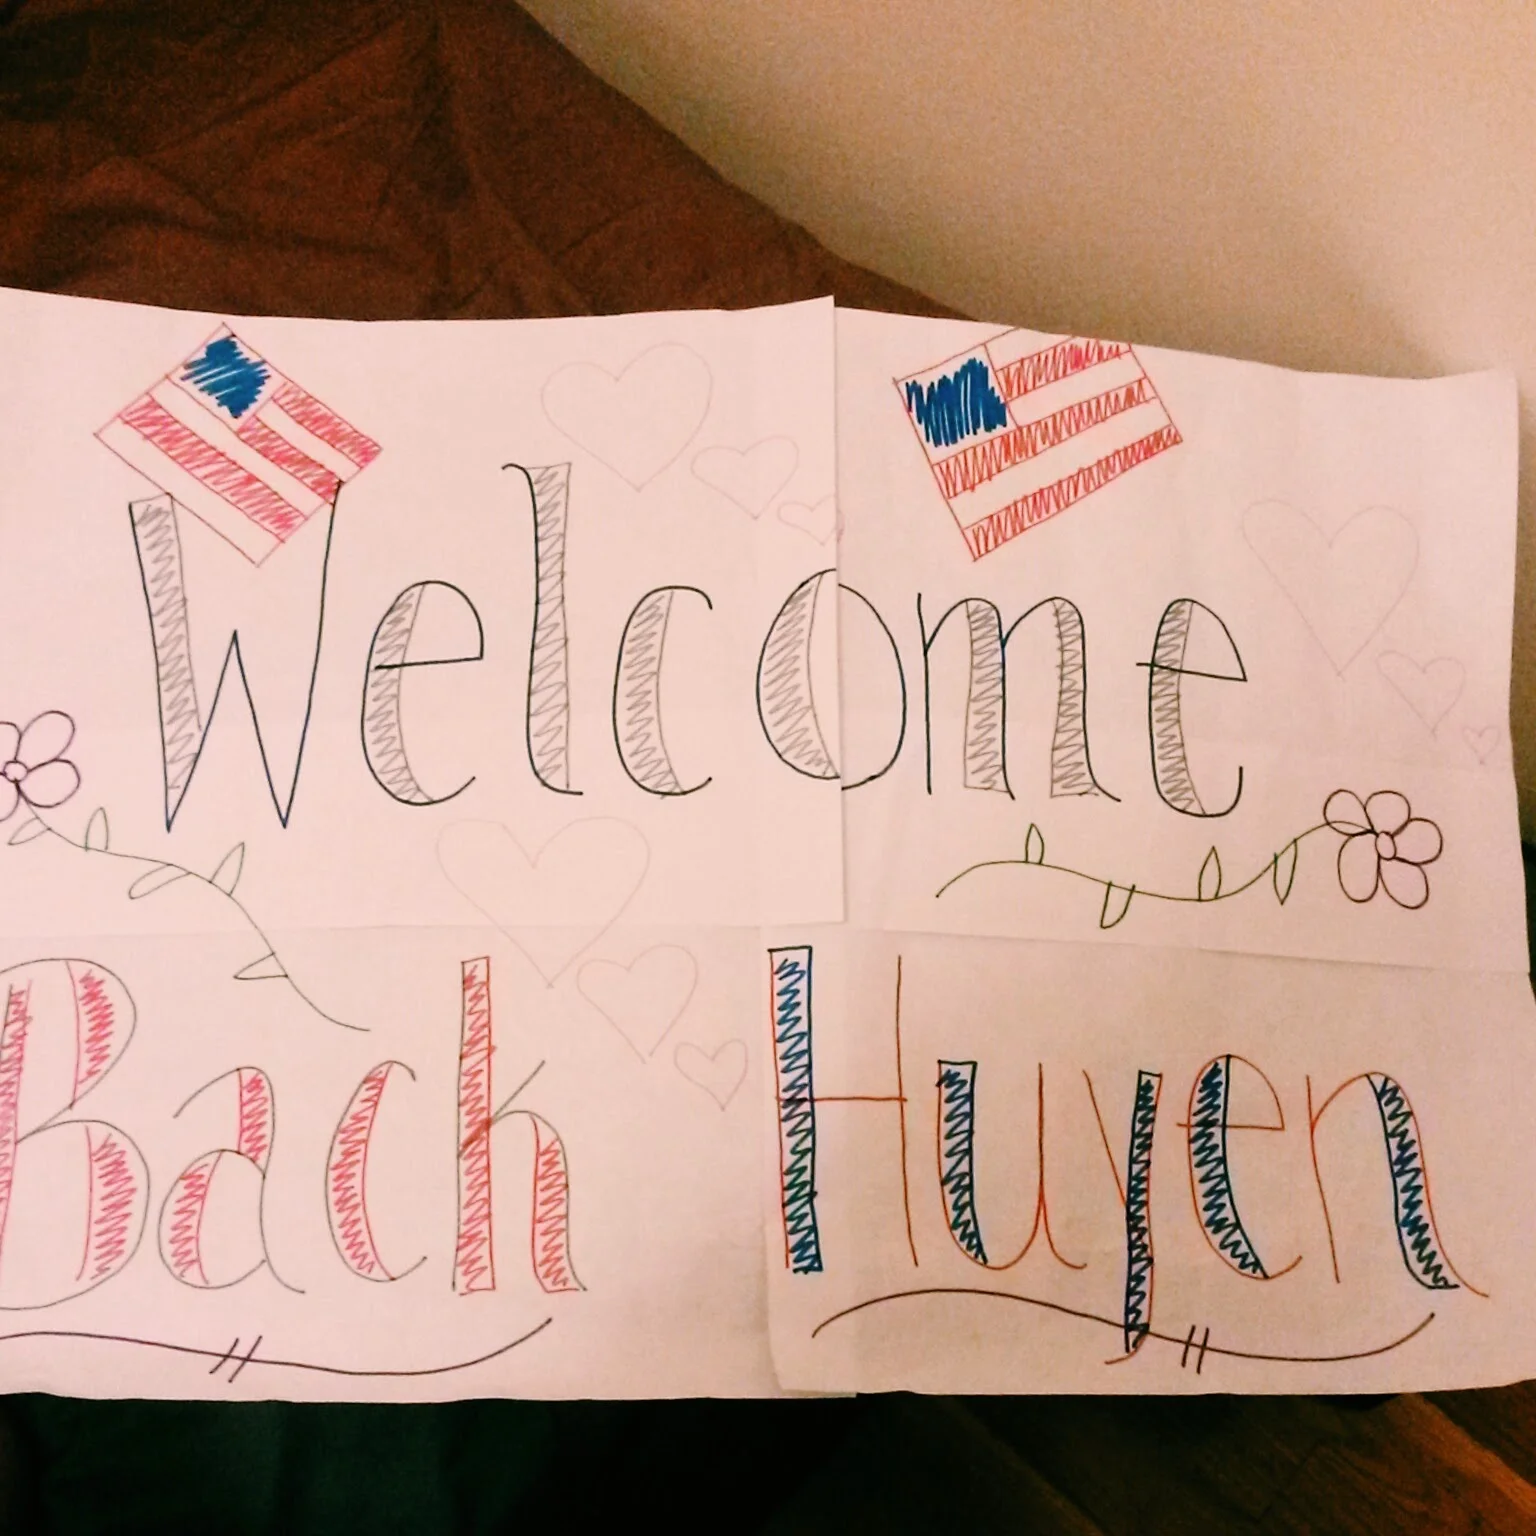 Welcome
Back Huyen